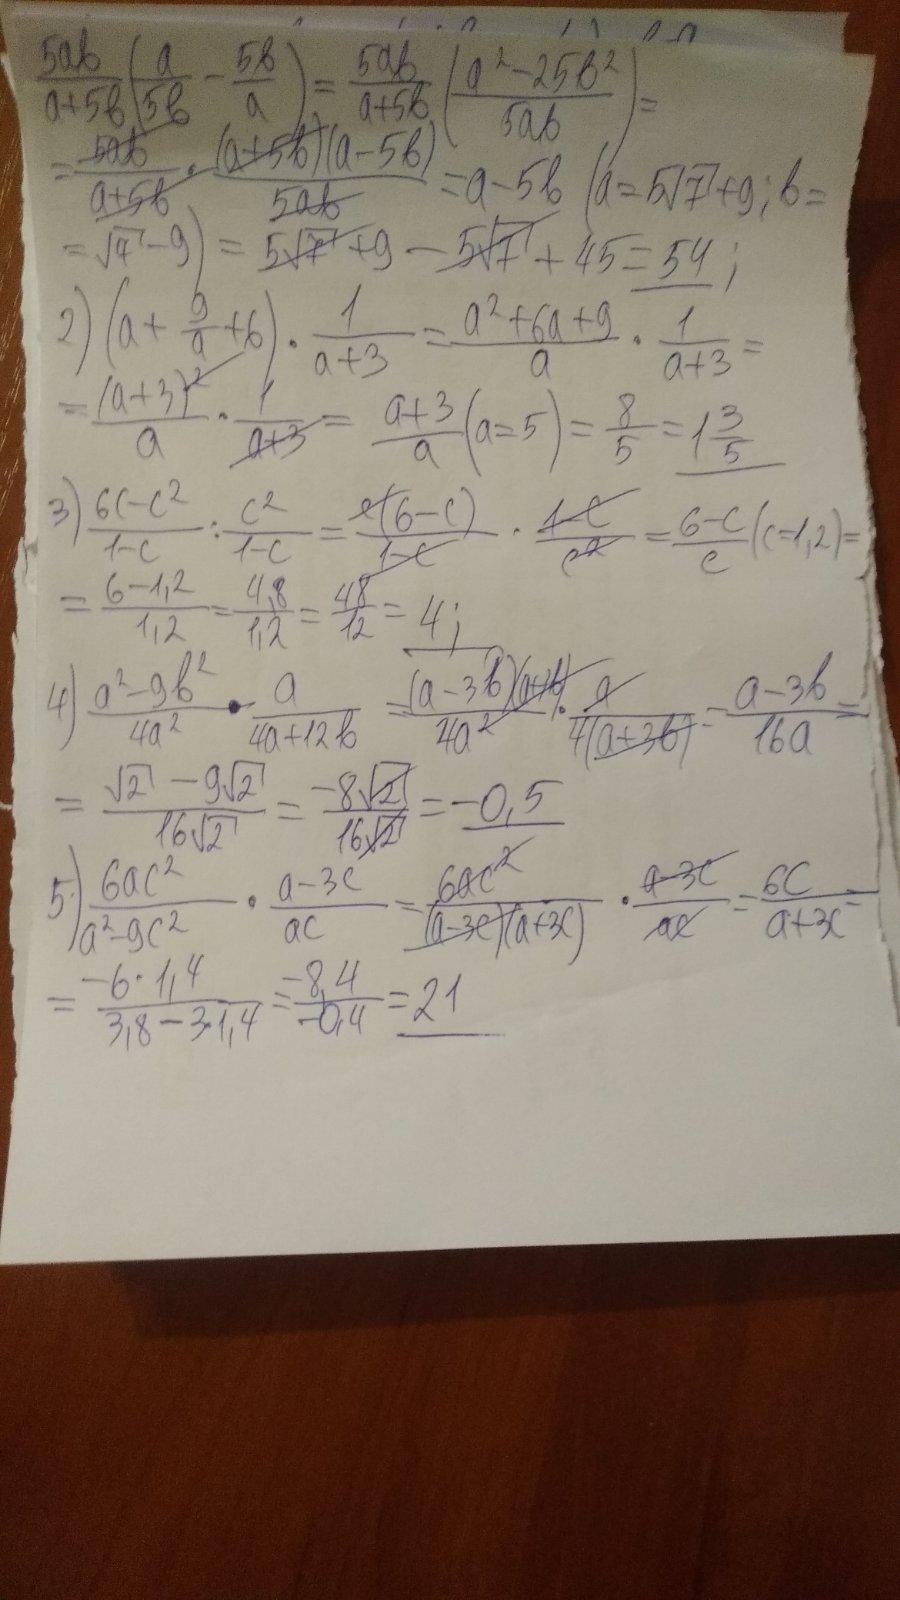 5ab/(a+5b) (a/5b − 5b/a) = 5ab/(a+5b) ((a²−25b²)/5ab) =
= 5ab/(a+5b) · (a+5b)(a−5b)/5ab = a−5b (a=5√7+9; b=
= √7−9) = 5√7+9 − 5√7 + 45 = 54;
2) (a + 9/a + 6) · 1/(a+3) = (a²+6a+9)/a · 1/(a+3) =
= (a+3)²/a · 1/(a+3) = (a+3)/a (a=5) = 8/5 = 1 3/5
3) (6c−c²)/(1−c) : c²/(1−c) = c(6−c)/(1−c) · (1−c)/c² = (6−c)/c (c=1,2) =
= (6−1,2)/1,2 = 4,8/1,2 = 48/12 = 4;
4) (a²−9b²)/4a² · a/(4a+12b) = (a−3b)(a+3b)/4a² · a/4(a+3b) = (a−3b)/16a =
= (√2 − 9√2)/16√2 = −8√2/16√2 = −0,5
5) 6ac²/(a²−9c²) · (a−3c)/ac = 6ac²/(a−3c)(a+3c) · (a−3c)/ac = 6c/(a+3c) =
= −6·1,4/(3,8−3·1,4) = −8,4/−0,4 = 21